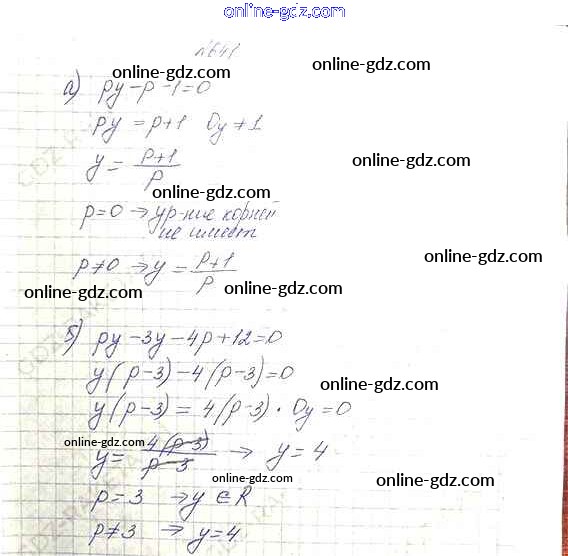 online-gdz.com
№641
online-gdz.com
а) py-p-1=0
py = p+1   0y≠1
online-gdz.com
y = (p+1)/p
online-gdz.com
p=0 → ур-ние корней
не имеет
online-gdz.com
p≠0 → y = (p+1)/p
online-gdz.com
online-gdz.com
б) py-3y-4p+12=0
y(p-3)-4(p-3)=0
online-gdz.com
y(p-3) = 4(p-3) · 0y=0
online-gdz.com
online-gdz.com
y = 4(p-3)/(p-3) → y=4
online-gdz.com
p=3 → y∈R
online-gdz.com
p≠3 → y=4